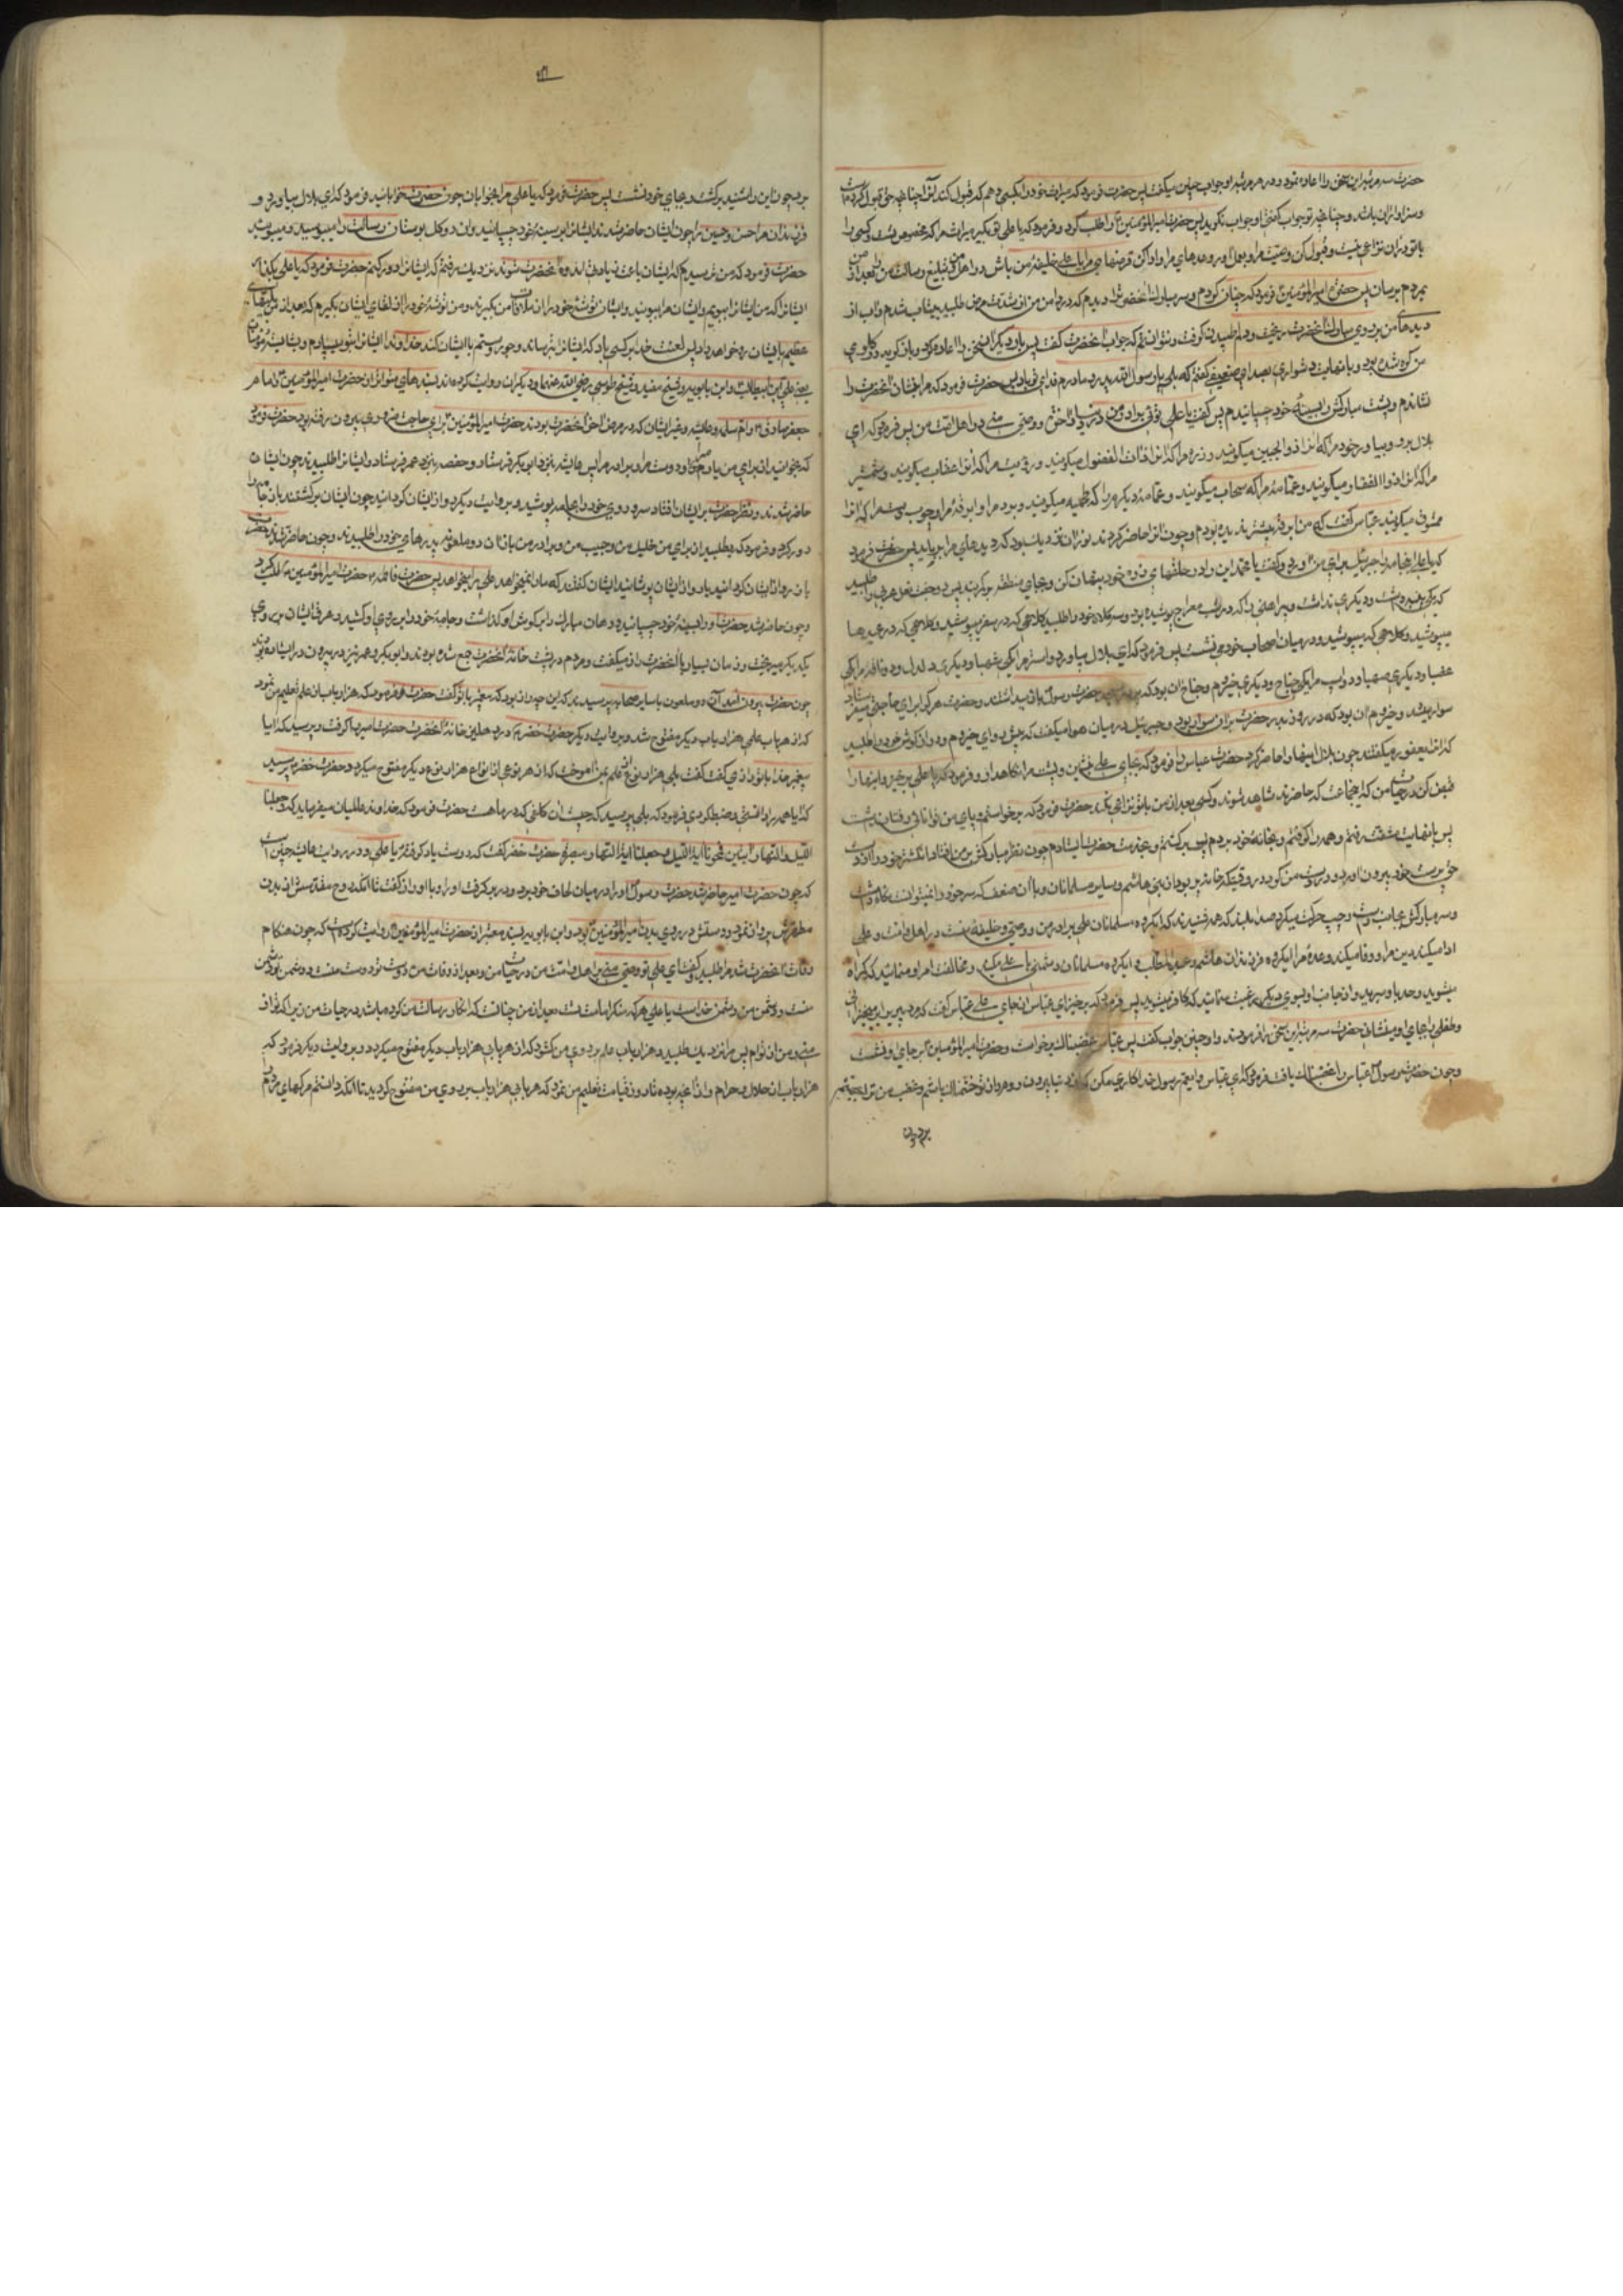 حضرت سه مرتبه این سخن را اعاده نمود و در هر مرتبه او جواب چنین میگفت پس حضرت فرمود که میراث خود را بکسی دهم که قبول کند آنرا چنانچه حق قبول کردنست
و سزاوار آن باشد و چنانچه تو جواب گفتی او جواب نگوید پس حضرت امیرالمؤمنین را طلب کرد و فرمود که یا علی تو بگیر میراث مرا که مخصوص تست و کسی را
با تو در آن نزاعی نیست و قبول کن وصیت مرا و بعمل آور وعدهای مرا و ادا کن قرضهای مرا یا علی خلیفه من باش در اهل من و تبلیغ رسالت من بعد از من
بمردم برسان پس حضرت امیرالمؤمنین فرمود که چنان کردم و سر مبارک آنحضرت را دیدم که در دامن من از شدت مرض میطپید بیتاب شدم و آب از
دیدهای من بر روی مبارک آنحضرت ریخت و دلم طپیدن گرفت و نتوانستم که جواب آنحضرت گفت پس بار دیگر این سخن را اعاده کرد و
من گره شده بود و بانهایت دشواری بصدای ضعیفی گفتم که بلی یا رسول الله پدر و مادرم فدای تو باد پس حضرت فرمود که مرا بنشان آنحضرت را
نشاندم و پشت مبارکش را بسینه خود چسپانیدم پس گفت یا علی توئی برادر من در دنیا و آخرت و وصی منی در اهل و امت من پس فرمود که ای
بلال برو و بیاور خود مرا که آنرا ذو الجبین میگویند و زره مرا که آنرا ذات الفضول میگویند و رایت مرا که آنرا عقاب میگویند و شمشیر
مرا که آنرا ذوالفقار میگویند و عمامه مرا که سحاب میگویند و عمامه دیگر مرا که
ممشوق میگویند عباس گفت که من آن برد را پیشتر ندیده بودم و چون آنرا حاضر کردند نور آن نزدیک بود که دیدهای مرا برباید پس حضرت فرمود
که یا علی اینجامه را جبرئیل برای من آورد و گفت یا محمد این را در حلقهای زره خود پنهان کن و بجای منطقه بر کمر ببند پس دو جفت نعل عربی را طلبید
که یکی پینه داشت و دیگری نداشت و پیراهنی را که در شب معراج پوشیده بود و سه کلاه خود را طلبید کلاهی که در سفر میپوشید و کلاهی که در عیدها
میپوشید و کلاهی که میپوشید و در میان اصحاب خود می نشست پس فرمود که ای بلال بیاور دو استر مرا یکی شهبا و دیگری دلدل و دو ناقه مرا یکی
عضبا و دیگری صهبا و دو اسب مرا یکی جناح و دیگری حیزوم و جناح آن بود که بر در مسجد حضرت رسول باز میداشتند و حضرت هر که را برای حاجتی میفرستاد
سوار میشد و حیزوم آن بود که در روز بدر حضرت بر آن سوار بود و جبرئیل در میان هوا میگفت که پیش رو ای حیزوم و دراز گوش خود را طلبید
که آنرا یعفور میگفتند چون بلال اینها را حاضر کرد حضرت عباس را فرمود که بجای علی بنشین و پشت مرا نگاهدار و فرمود که یا علی برخیز و اینها را
قبض کن در حیات من که این جماعت که حاضرند شاهد شوند و کسی بعد از من با تو نزاعی نکند حضرت فرمود که برخواستم و پای من توانائی رفتن نداشت
پس بانهایت مشقت رفتم و همه را گرفتم و بخانه خود بردم پس برگشتم و بخدمت حضرت ایستادم چون نظر مبارکش بر من افتاد انگشتر خود را از دست
حق پرست خود بیرون آورد و در دست من کرد در وقتیکه خانه پر بود از بنی هاشم و سایر مسلمانان و با آن ضعف که سر خود را نمیتوانست نگاه داشت
و سر مبارکش بجانب راست و چپ حرکت میکرد صدا بلند کرد که همه شنیدند که ای گروه مسلمانان علی برادر من و وصی و خلیفه منست در اهل و امت و علی
ادا میکند دین مرا و وفا میکند وعده مرا ای گروه فرزندان هاشم و عبدالمطلب و ای گروه مسلمانان دشمنی با علی مکنید و مخالفت امر او منمائید که گمراه
میشوید و حسد باو مبرید و از جانب او بسوی دیگری رغبت منمائید که کافر میشوید پس فرمود که برخیز ای عباس از جای علی عباس گفت که مرد پیر را بر میخیزانی
و طفلی را بجای او مینشانی حضرت سه مرتبه این سخن را فرمودند و او چنین جواب گفت پس عباس غضبناک برخواست و حضرت امیرالمؤمنین بر جای او نشست
و چون حضرت رسول عباس را غضبناک یافت فرمود که ای عباس و ای عم رسول خدا کاری مکن که از دنیا بیرون روم و من از تو خشمناک باشم و غضب من ترا بجهنم
برد چون
برد چون این را شنید برگشت و بجای خود نشست پس حضرت فرمود که یا علی مرا بخوابان چون حضرت خوابانید فرمود که ای بلال بیاور دو
فرزندان مرا حسن و حسین را چون ایشان حاضر شدند ایشان را بسینه خود چسپانید و آن دو گل بوستان رسالت را میبوسید و میبوئید
حضرت فرمود که من ترسیدم که ایشان باعث زیادتی اندوه آنحضرت شوند نزدیک رفتم که ایشان را دور کنم حضرت فرمود که یا علی بگذار
ایشان را که من ایشان را ببویم و ایشان مرا ببویند و ایشان توشه خود را از ملاقات من بگیرند و من توشه خود را از لقای ایشان بگیرم که بعد از من بلاهای
عظیم بایشان رو خواهد داد پس لعنت خدا بر کسی باد که ایشان را بترساند و جور و ستم با ایشان کند خداوندا ایشان را بتو میسپارم و بشایسته مؤمنان
یعنی علی بن ابیطالب و ابن بابویه و شیخ مفید و شیخ طوسی رضی الله عنهما و دیگران روایت کرده اند بسندهای متواتر از حضرت امیرالمؤمنین و امام
جعفر صادق و ام سلمه و عایشه و غیر ایشان که در مرض آخر آنحضرت بودند حضرت امیرالمؤمنین برای حاجت ضروری بیرون رفته بود حضرت فرمود
که بخوانید از برای من یار و دوست مرا و برادر مرا پس عایشه بنزد ابوبکر فرستاد و حفصه بنزد عمر فرستاد و ایشان را طلبیدند چون ایشان
حاضر شدند و نظر حضرت بر ایشان افتاد سر و روی خود را بجامه پوشید و بروایت دیگر رو از ایشان گردانید چون ایشان برگشتند باز جامه را
دور کرد و فرمود که بطلبید از برای من خلیل من و حبیب من و برادر من باز آن دو ملعونه پدرهای خود را طلبیدند و چون حاضر شدند حضرت
باز رو از ایشان گردانید یا رو از ایشان پوشانید ایشان گفتند که ما را نمیخواهد علی را میخواهد پس حضرت فاطمه حضرت امیرالمؤمنین را طلب کرد
و چون حاضر شد حضرت او را بسینه خود چسپانید و دهان مبارک را بر گوش او گذاشت و جامه خود را بر روی او کشید و عرق ایشان بر روی
یکدیگر میریخت و زمان بسیار با آنحضرت راز میگفت و مردم در پشت خانه آنحضرت جمع شده بودند و ابوبکر و عمر نیز در بیرون در ایستاده بودند
چون حضرت بیرون آمد آن دو ملعون با سایر صحابه پرسیدند که این چه راز بود که پیغمبر با تو گفت حضرت فرمود که هزار باب از علم تعلیم من نمود
که از هر باب علمی هزار باب دیگر مفتوح شد و بروایت دیگر حضرت خضر در دهلیز خانه آنحضرت حضرت امیر را گرفت و پرسید که آیا
پیغمبر خدا با تو رازی گفت گفت بلی هزار نوع از علم بمن آموخت که از هر نوعی از انواع هزار نوع دیگر مفتوح میکردد حضرت خضر پرسید
که آیا همه را دانستی و ضبط کردی فرمود که بلی پرسید که چیست آن کلفی که در ماهست حضرت فرمود که خداوند عالمیان میفرماید که و جعلنا
اللیل و النهار آیتین فمحونا آیة اللیل و جعلنا آیة النهار مبصرة حضرت خضر گفت که درست یاد گرفته یا علی و در روایت چنین است
که چون حضرت امیر حاضر شد حضرت رسول او را در میان لحاف خود برد و در بر گرفت او را و با او راز گفت تا آنکه روح مقدسش از بدن
مطهرش پرواز نمود و دستش در بر روی بدن امیرالمؤمنین بود و ابن بابویه بسند معتبر از حضرت امیرالمؤمنین روایت کرده است که چون هنگام
وفات آنحضرت شد مرا طلبید گفت ای علی تو وصی منی بر اهل و امت من در حیات من و بعد از وفات من دوست تو دوست منست و دشمن تو دشمن
منست و دشمن من دشمن خداست یا علی هر که منکر امامت تست بعد از من چنانست که انکار رسالت من کرده باشد در حیات من زیرا که تو از
منی و من از توام پس مرا نزدیک طلبید و هزار باب علم بر روی من گشود که از هر بابی هزار باب دیگر مفتوح میکردد و بروایت دیگر فرمود که
هزار باب از حلال و حرام و از آنچه بوده تا روز قیامت تعلیم من نمود که هر بابی هزار باب بر روی من مفتوح گردید تا آنکه دانستم مرگهای مردم